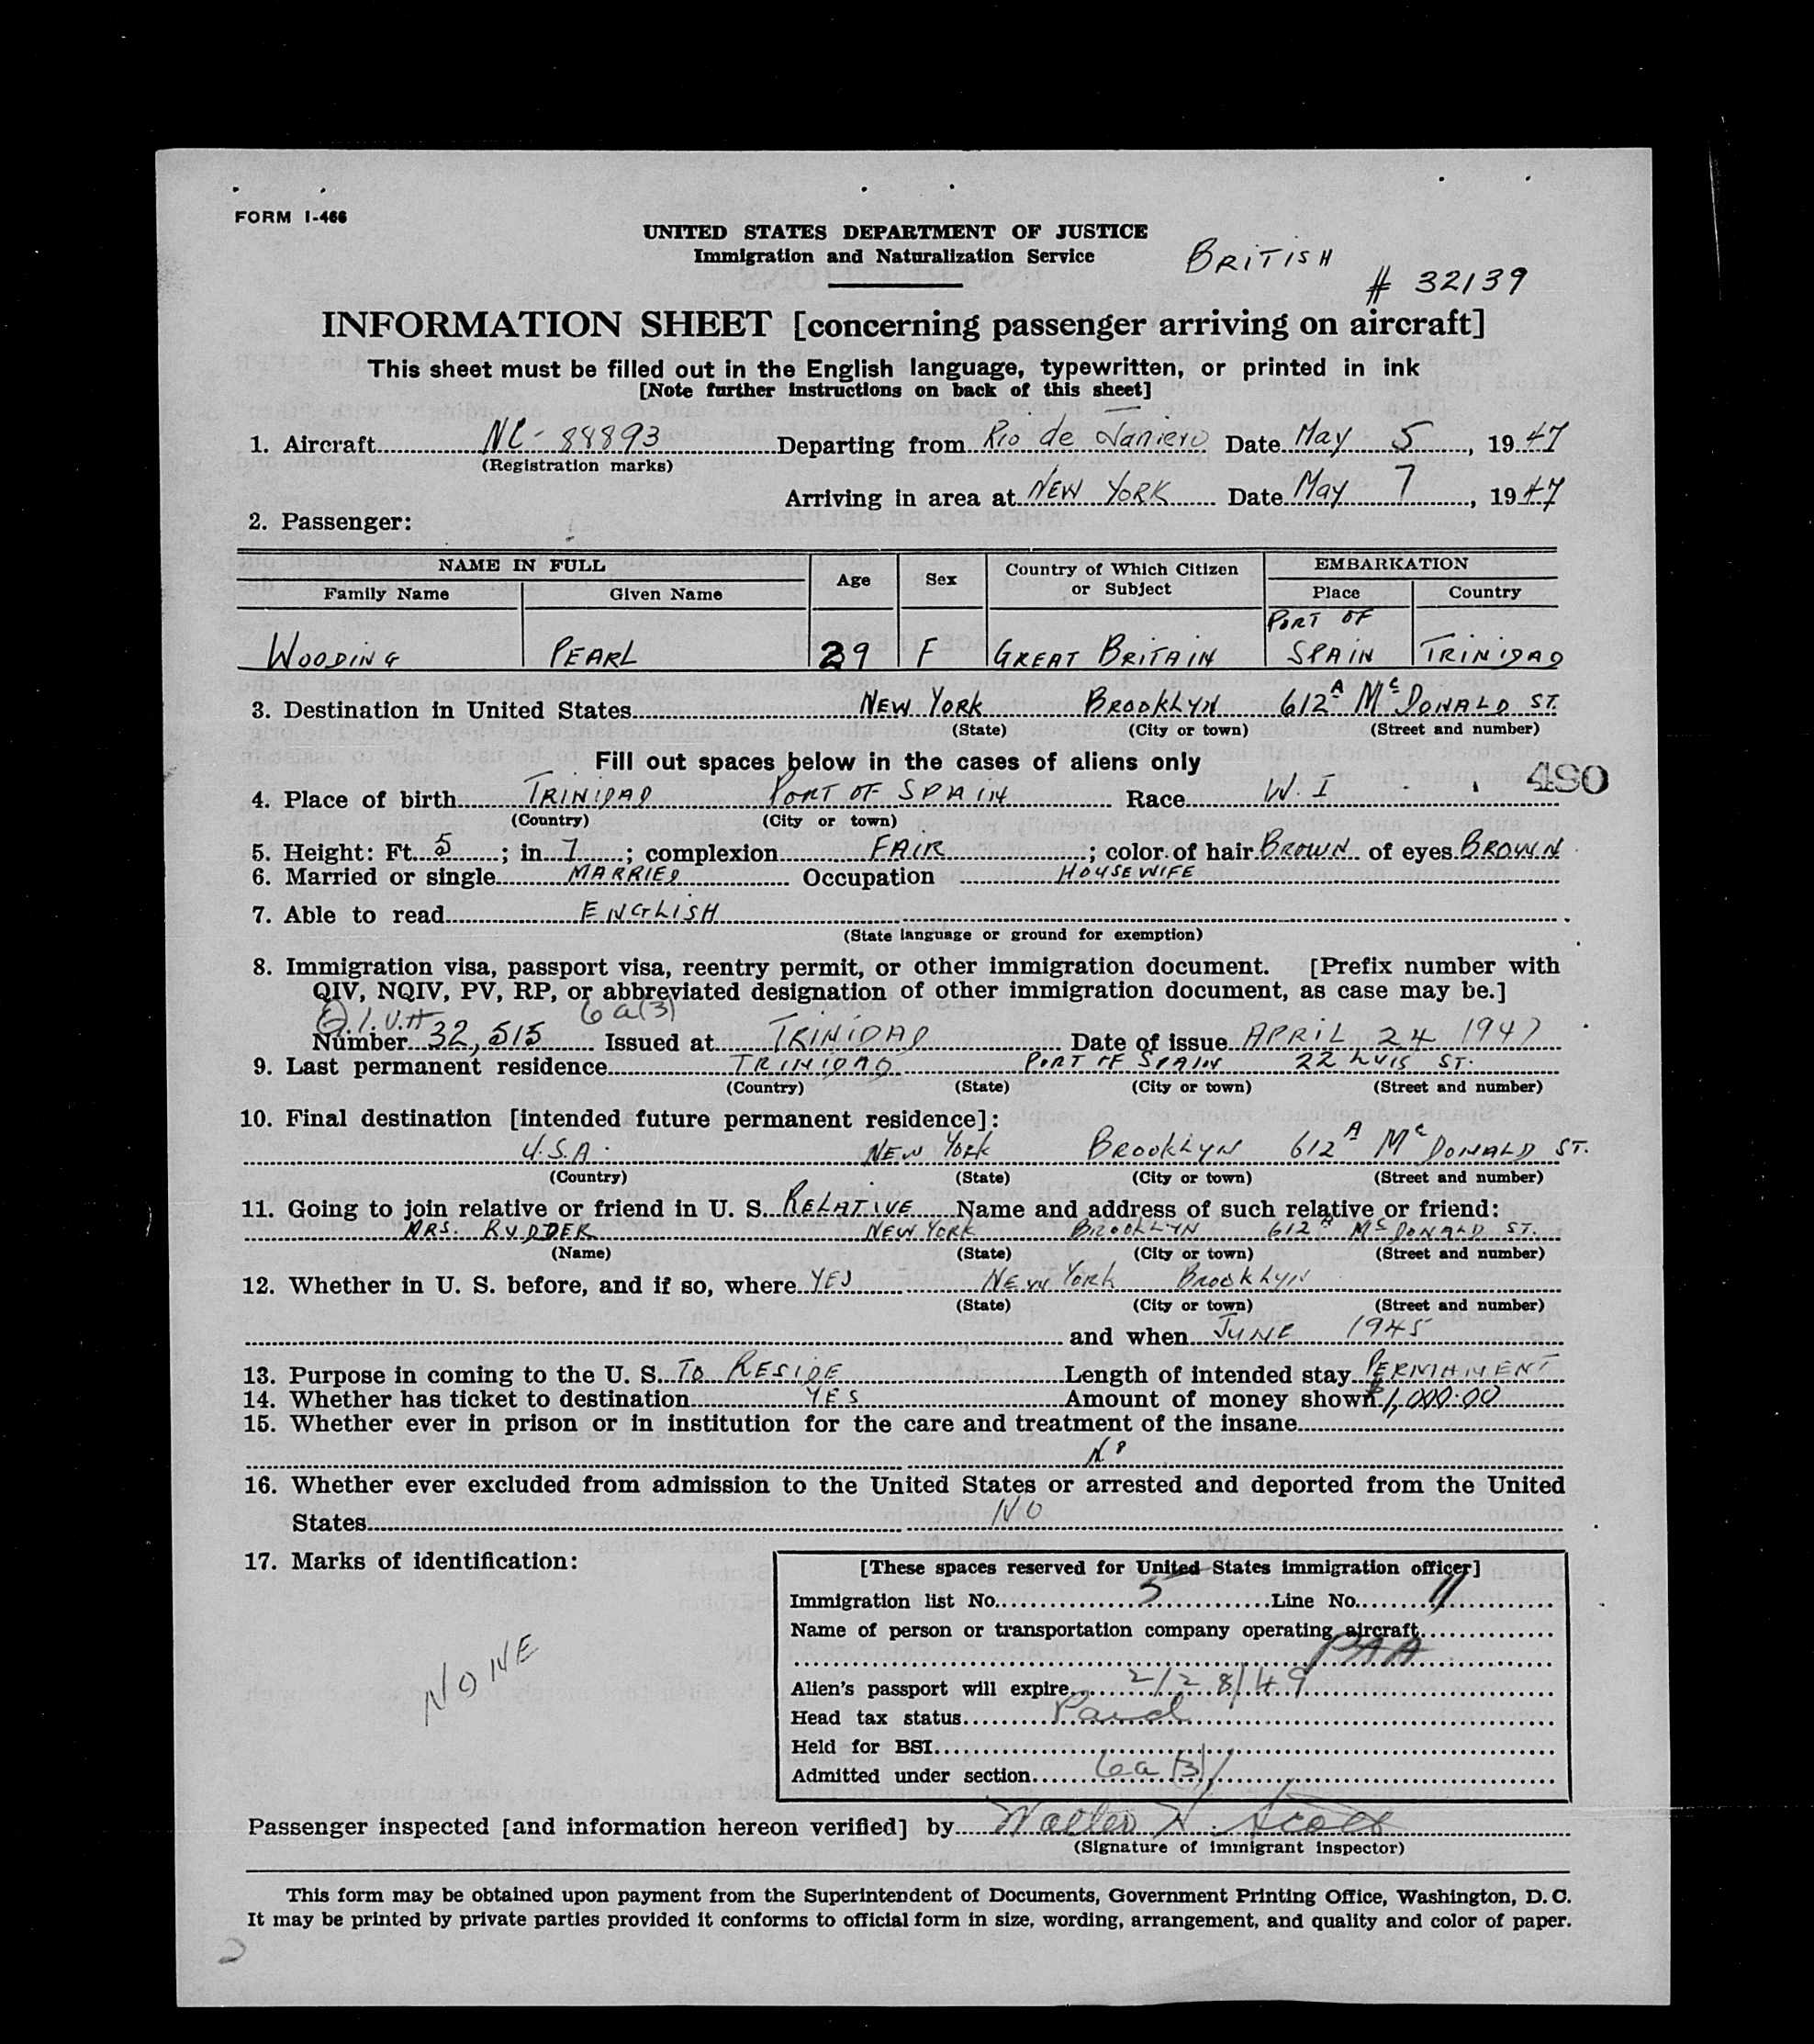 FORM I-466
UNITED STATES DEPARTMENT OF JUSTICE
Immigration and Naturalization Service
BRITISH
# 32139
INFORMATION SHEET [concerning passenger arriving on aircraft]
This sheet must be filled out in the English language, typewritten, or printed in ink
[Note further instructions on back of this sheet]
1. Aircraft NC-88893 Departing from Rio de Janiero Date May 5, 1947
(Registration marks)
Arriving in area at NEW YORK Date May 7, 1947
2. Passenger:
NAME IN FULL Age Sex Country of Which Citizen or Subject EMBARKATION
Family Name Given Name Place Country
WOODING PEARL 29 F GREAT BRITAIN PORT OF SPAIN TRINIDAD
3. Destination in United States NEW YORK BROOKLYN 612A McDONALD ST.
(State) (City or town) (Street and number)
Fill out spaces below in the cases of aliens only
490
4. Place of birth TRINIDAD PORT OF SPAIN Race W.I
(Country) (City or town)
5. Height: Ft. 5; in 7; complexion FAIR; color of hair BROWN of eyes BROWN
6. Married or single MARRIED Occupation HOUSEWIFE
7. Able to read ENGLISH
(State language or ground for exemption)
8. Immigration visa, passport visa, reentry permit, or other immigration document. [Prefix number with
QIV, NQIV, PV, RP, or abbreviated designation of other immigration document, as case may be.]
Q.I.V.# 6a(3)
Number 32,515 Issued at TRINIDAD Date of issue APRIL 24 1947
9. Last permanent residence TRINIDAD PORT OF SPAIN 22 LUIS ST.
(Country) (State) (City or town) (Street and number)
10. Final destination [intended future permanent residence]:
U.S.A. NEW YORK BROOKLYN 612A McDONALD ST.
(Country) (State) (City or town) (Street and number)
11. Going to join relative or friend in U. S. RELATIVE Name and address of such relative or friend:
MRS. RUDDER NEW YORK BROOKLYN 612A McDONALD ST.
(Name) (State) (City or town) (Street and number)
12. Whether in U. S. before, and if so, where YES NEW YORK BROOKLYN
(State) (City or town) (Street and number)
and when JUNE 1945
13. Purpose in coming to the U. S. TO RESIDE Length of intended stay PERMANENT
14. Whether has ticket to destination YES Amount of money shown $1,000.00
15. Whether ever in prison or in institution for the care and treatment of the insane
No
16. Whether ever excluded from admission to the United States or arrested and deported from the United
States NO
17. Marks of identification:
NONE
[These spaces reserved for United States immigration officer]
Immigration list No. 5 Line No. 11
Name of person or transportation company operating aircraft
PAA
Alien's passport will expire 2/28/49
Head tax status Paid
Held for BSI
Admitted under section 6a(3)
Passenger inspected [and information hereon verified] by Walter H. Scott
(Signature of immigrant inspector)
This form may be obtained upon payment from the Superintendent of Documents, Government Printing Office, Washington, D. C.
It may be printed by private parties provided it conforms to official form in size, wording, arrangement, and quality and color of paper.